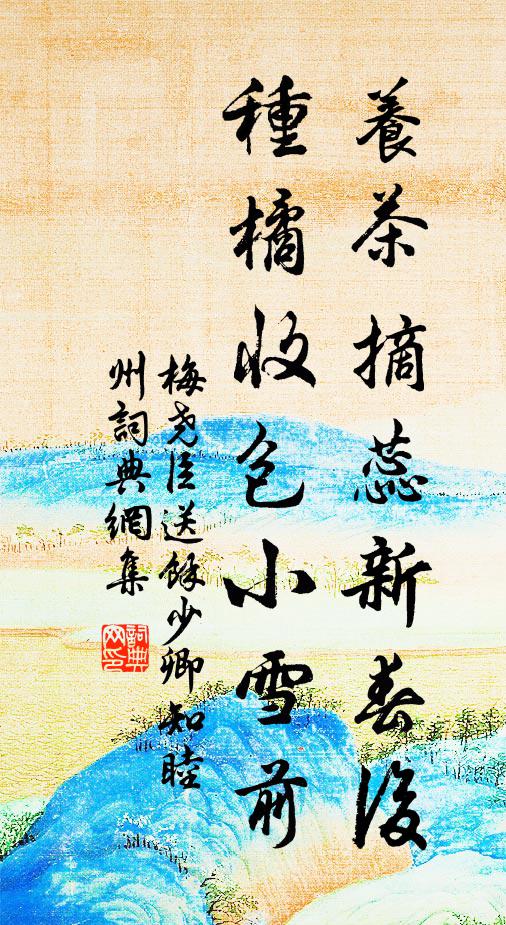 養茶摘蕊新春後
種橘收包小雪前
梅堯臣送餘少卿知睦
州詞典網集
詞典
网印